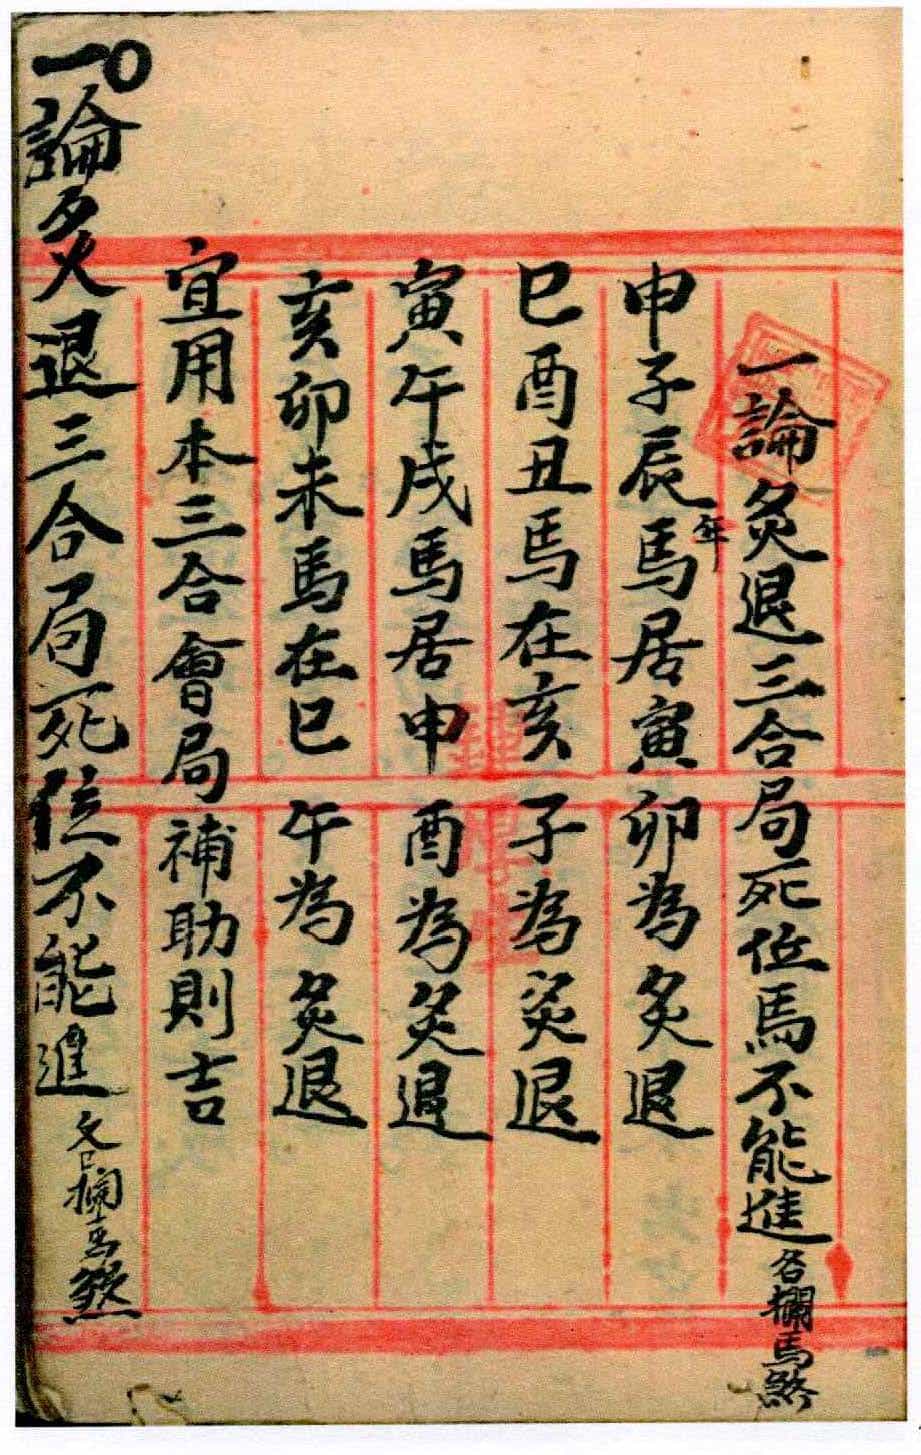 一論炙退三合局死位馬不能進 名攔馬煞
申子辰年馬居寅 卯為炙退
巳酉丑馬在亥 子為炙退
寅午戌馬居申 酉為炙退
亥卯未馬在巳 午為炙退
宜用本三合會局補助則吉
一論炙退三合局死位不能進